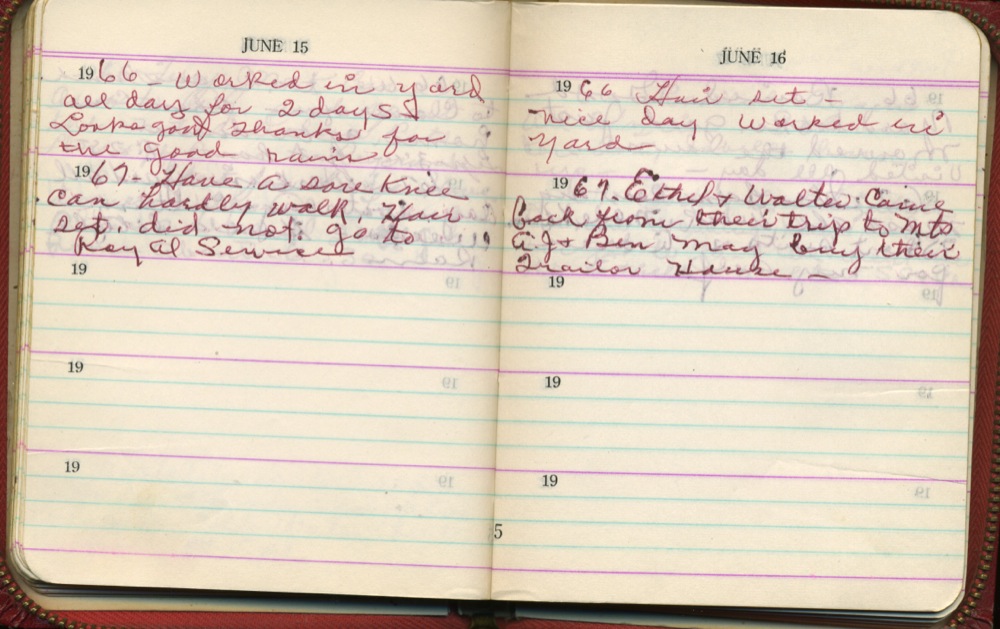 JUNE 15
1966 Worked in yard
all day for 2 days
Looks good thanks for
the good rain
1967- Have a sore Knee
can hardly walk. Hair
set. did not go to
Royal Service
19
19
19
JUNE 16
1966 Hair set -
nice day worked in
yard
1967. Ethel & Walter Came
back from their trip to Mts
A.J + Ben may buy their
Trailor House -
19
19
19
5